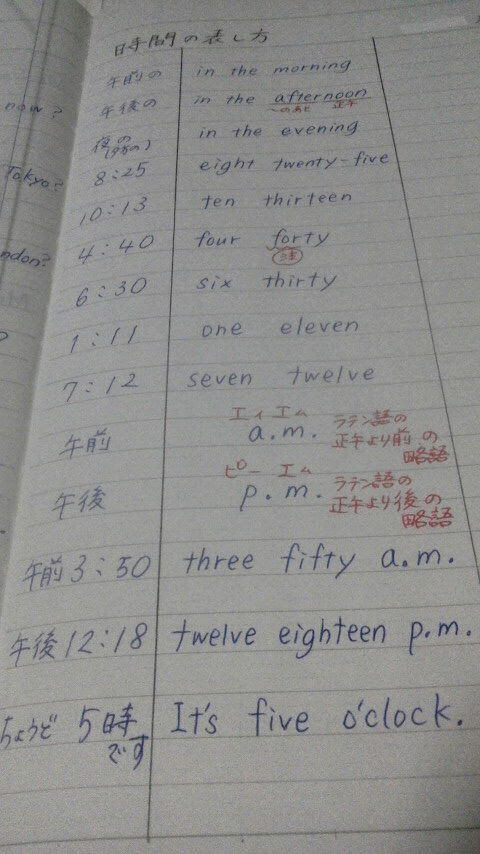 時間の表し方
午前の in the morning
午後の in the afternoon
〜のあと 正午
夜の in the evening
(夕方の)
now?
8:25 eight twenty-five
Tokyo?
10:13 ten thirteen
4:40 four forty
注
ndon?
6:30 six thirty
1:11 one eleven
7:12 seven twelve
エィ エム
午前 a.m. ラテン語の
正午より前の
略語
ピー エム
午後 p.m. ラテン語の
正午より後の
略語
午前3:50 three fifty a.m.
午後12:18 twelve eighteen p.m.
ちょうど 5時 It's five o'clock.
です